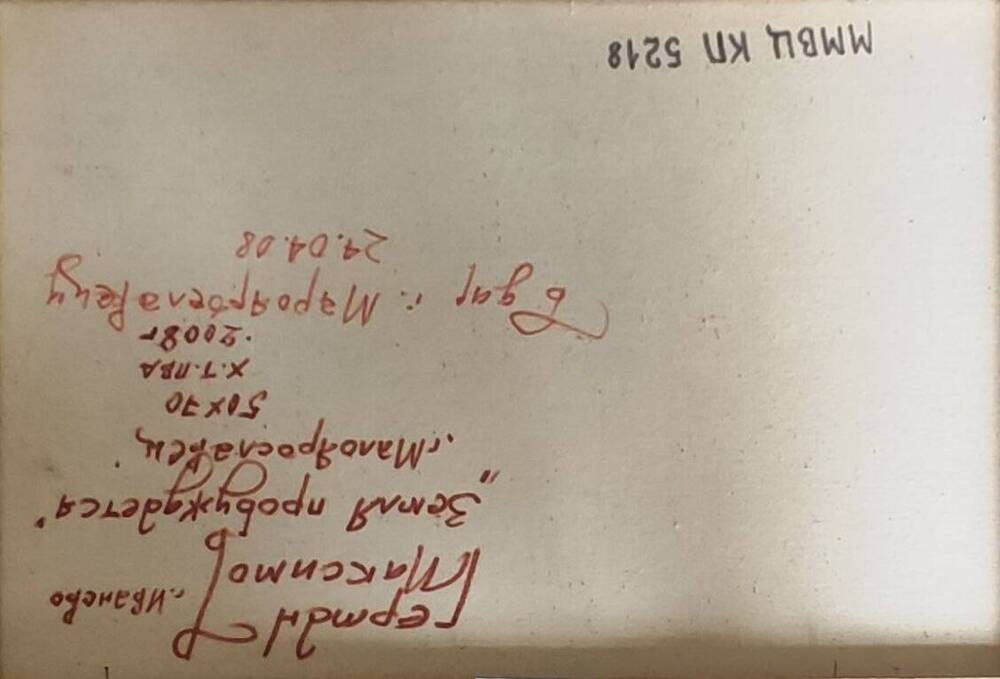 Герман
Максимов
г. Иваново
„Земля пробуждается"
г. Малоярославец
50х70
х.т.ПВА
2008г
В дар г. Мароярославецу
24.04.08
ММВЦ КП 5218